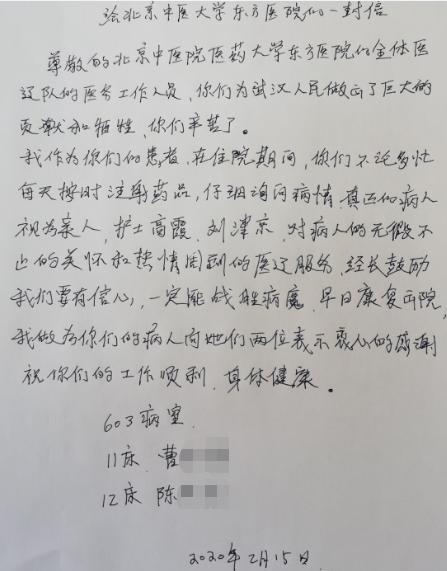 给北京中医大学东方医院的一封信
尊敬的北京中医院医药大学东方医院的全体医
辽队的医务工作人员，你们为武汉人民做出了巨大的
贡献和牺牲，你们辛苦了。
我作为你们的患者，在住院期间，你们不论多忙
每天按时注射药品，仔细询问病情，真正的病人
视为亲人，护士高霞、刘津京，对病人的无微不
止的关怀和热情周到的医辽服务，经长鼓励
我们要有信心，一定能战胜病魔，早日康复出院，
我做为你们的病人向她们两位表示衷心的感谢
祝你们的工作顺利，身体健康。
603病室
11床 曹
12床 陈
2020年2月15日